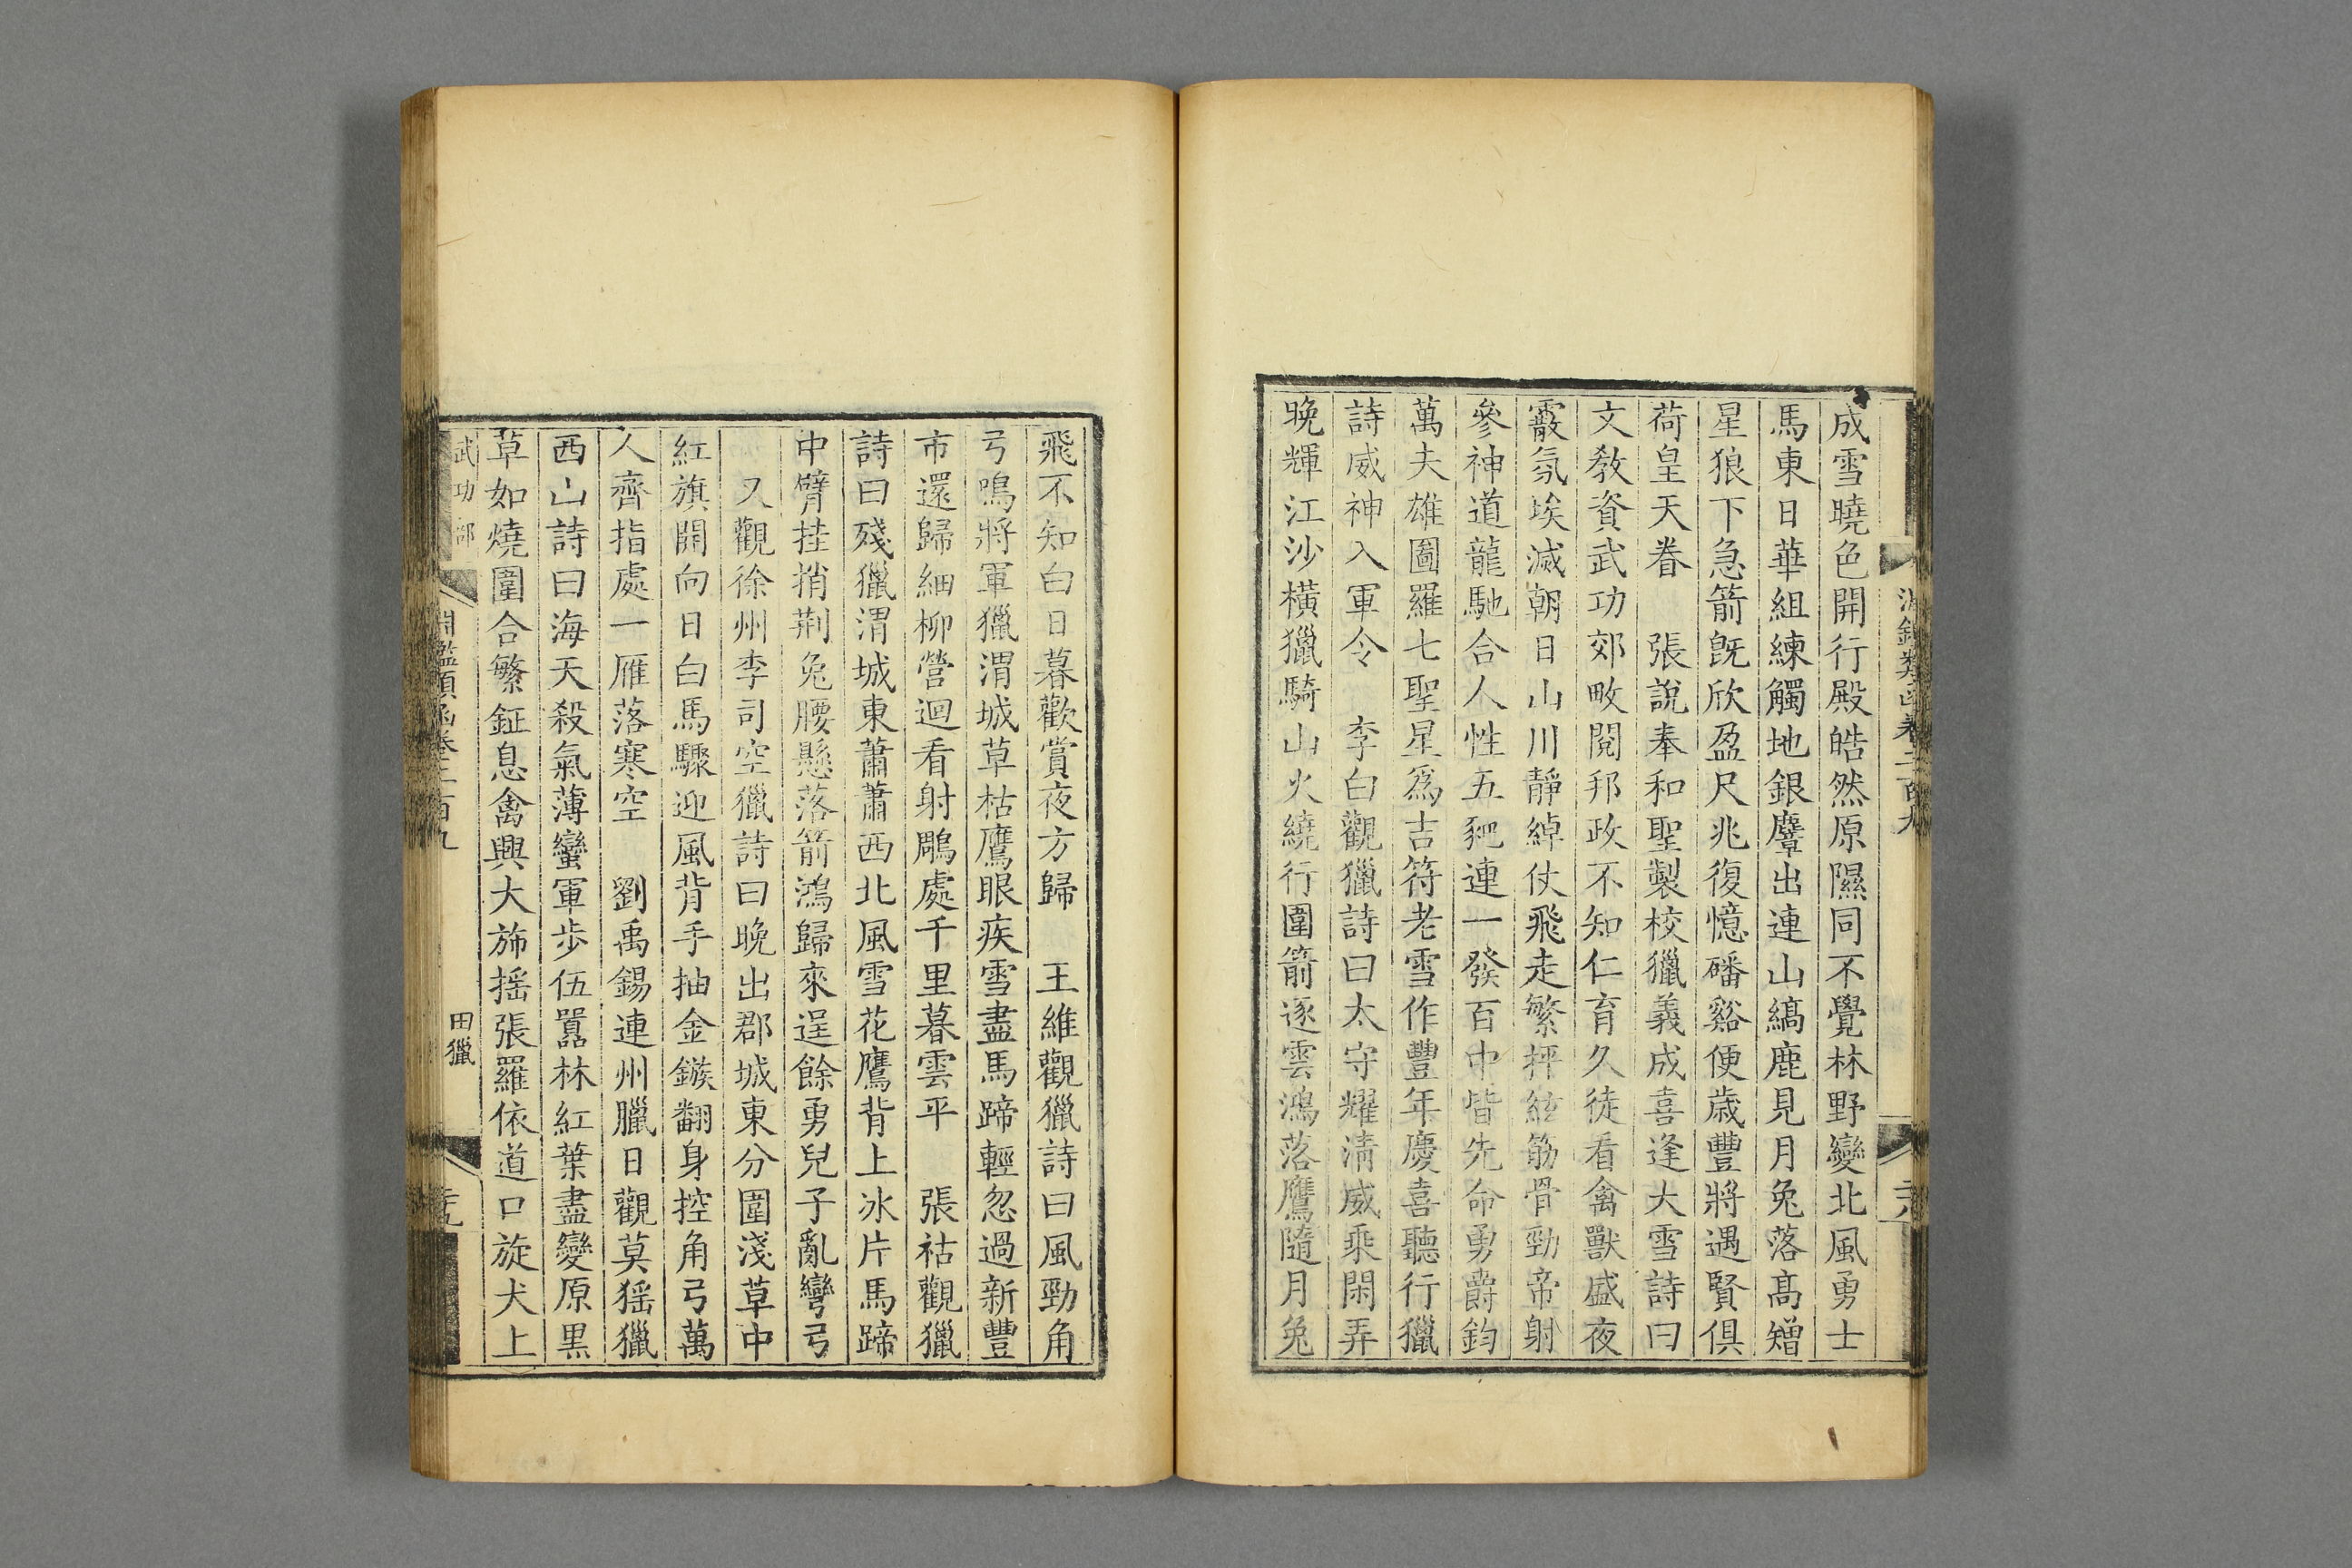 淵鑑類函卷二百九
成雪曉色開行殿皓然原隰同不覺林野變北風勇士
馬東日華組練觸地銀麞出連山縞鹿見月兔落高矰
星狼下急箭旣欣盈尺兆復憶磻谿便歲豐將遇賢俱
荷皇天眷　張說奉和聖製校獵義成喜逢大雪詩曰
文敎資武功郊畋閱邦政不知仁育久徒看禽獸盛夜
霰氛埃滅朝日山川靜綽仗飛走繁抨絃筋骨勁帝射
參神道龍馳合人性五豝連一發百中皆先命勇爵鈞
萬夫雄圖羅七聖星爲吉符老雪作豐年慶喜聽行獵
詩威神入軍令　李白觀獵詩曰太守耀淸威乘閑弄
晚輝江沙橫獵騎山火繞行圍箭逐雲鴻落鷹隨月兔
飛不知白日暮歡賞夜方歸　王維觀獵詩曰風勁角
弓鳴將軍獵渭城草枯鷹眼疾雪盡馬蹄輕忽過新豐
市還歸細柳營迴看射鵰處千里暮雲平　張祜觀獵
詩曰殘獵渭城東蕭蕭西北風雪花鷹背上冰片馬蹄
中臂挂捎荆兔腰懸落箭鴻歸來逞餘勇兒子亂彎弓
又觀徐州李司空獵詩曰晚出郡城東分圍淺草中
紅旗開向日白馬驟迎風背手抽金鏃翻身控角弓萬
人齊指處一雁落寒空　劉禹錫連州臘日觀莫猺獵
西山詩曰海天殺氣薄蠻軍步伍囂林紅葉盡變原黑
草如燒圍合繁鉦息禽興大斾搖張羅依道口旋犬上
武功部　淵鑑類函卷二百九　田獵